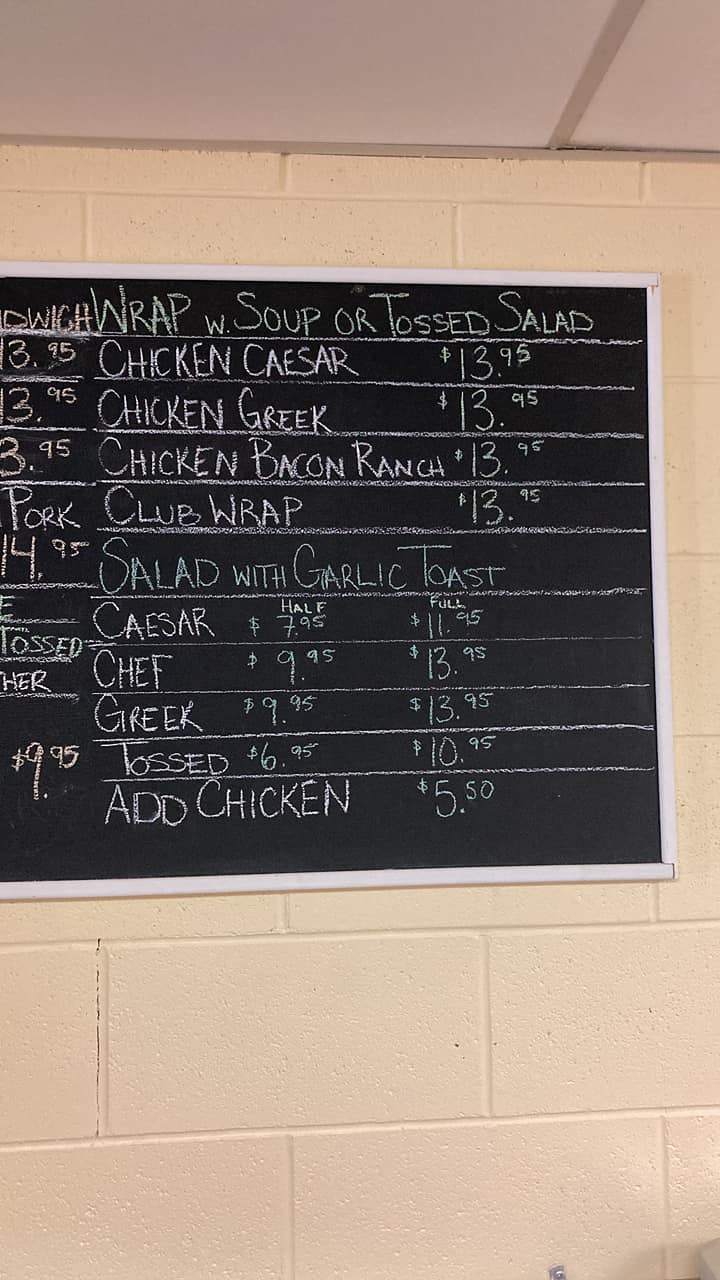 WRAP W. SOUP OR TOSSED SALAD
CHICKEN CAESAR $13.95
CHICKEN GREEK $13.95
CHICKEN BACON RANCH $13.95
CLUB WRAP $13.95
SALAD WITH GARLIC TOAST
HALF FULL
CAESAR $7.95 $11.95
CHEF $9.95 $13.95
GREEK $9.95 $13.95
TOSSED $6.95 $10.95
ADD CHICKEN $5.50
DWICH
13.95
13.95
3.95
PORK
14.95
E
TOSSED
HER
$9.95